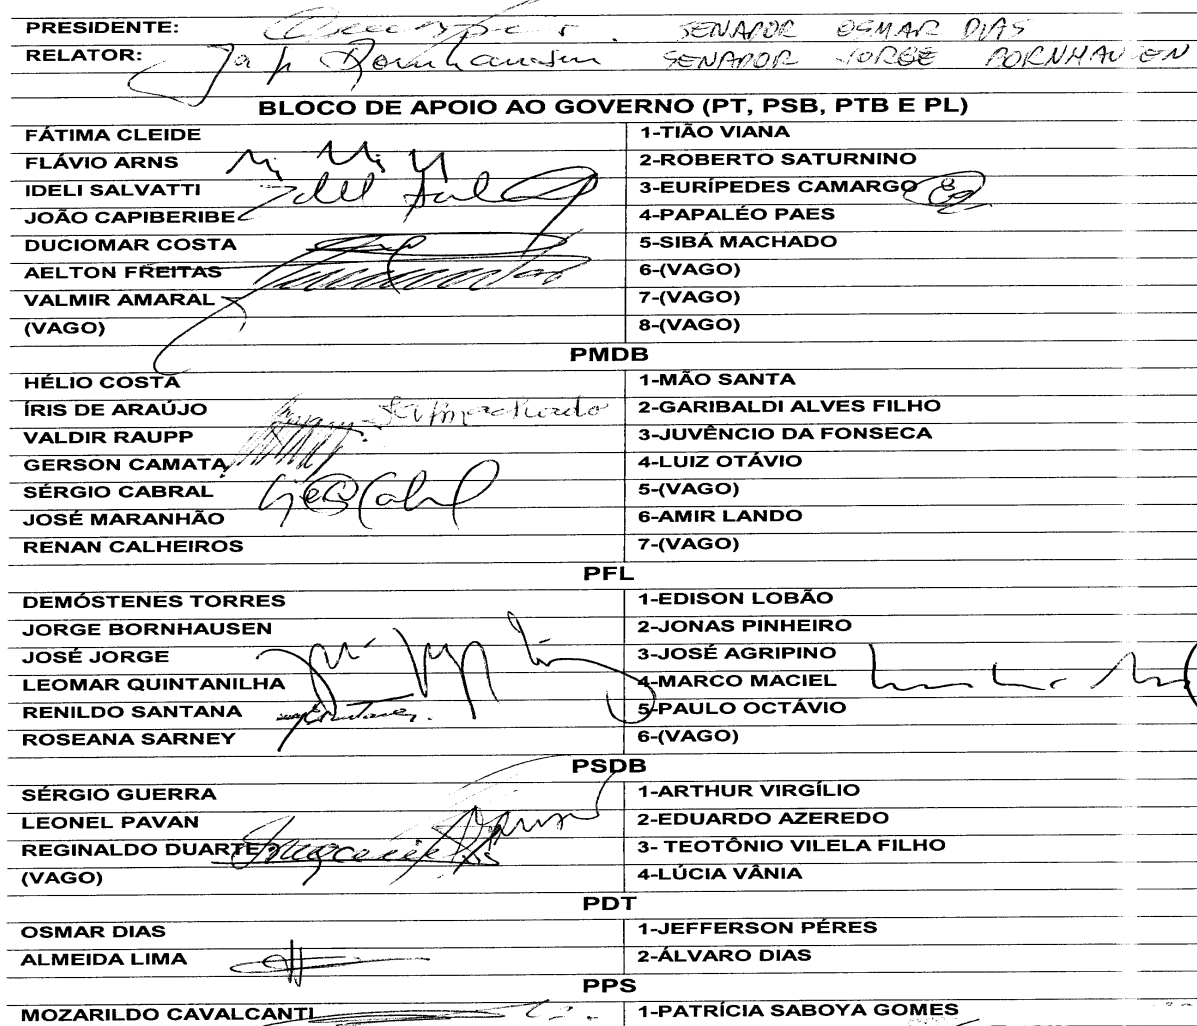 PRESIDENTE: SENADOR OSMAR DIAS
RELATOR: SENADOR JORGE BORNHAUSEN
BLOCO DE APOIO AO GOVERNO (PT, PSB, PTB E PL)
FÁTIMA CLEIDE 1-TIÃO VIANA
FLÁVIO ARNS 2-ROBERTO SATURNINO
IDELI SALVATTI 3-EURÍPEDES CAMARGO
JOÃO CAPIBERIBE 4-PAPALÉO PAES
DUCIOMAR COSTA 5-SIBÁ MACHADO
AELTON FREITAS 6-(VAGO)
VALMIR AMARAL 7-(VAGO)
(VAGO) 8-(VAGO)
PMDB
HÉLIO COSTA 1-MÃO SANTA
ÍRIS DE ARAÚJO 2-GARIBALDI ALVES FILHO
VALDIR RAUPP 3-JUVÊNCIO DA FONSECA
GERSON CAMATA 4-LUIZ OTÁVIO
SÉRGIO CABRAL 5-(VAGO)
JOSÉ MARANHÃO 6-AMIR LANDO
RENAN CALHEIROS 7-(VAGO)
PFL
DEMÓSTENES TORRES 1-EDISON LOBÃO
JORGE BORNHAUSEN 2-JONAS PINHEIRO
JOSÉ JORGE 3-JOSÉ AGRIPINO
LEOMAR QUINTANILHA 4-MARCO MACIEL
RENILDO SANTANA 5-PAULO OCTÁVIO
ROSEANA SARNEY 6-(VAGO)
PSDB
SÉRGIO GUERRA 1-ARTHUR VIRGÍLIO
LEONEL PAVAN 2-EDUARDO AZEREDO
REGINALDO DUARTE 3- TEOTÔNIO VILELA FILHO
(VAGO) 4-LÚCIA VÂNIA
PDT
OSMAR DIAS 1-JEFFERSON PÉRES
ALMEIDA LIMA 2-ÁLVARO DIAS
PPS
MOZARILDO CAVALCANTI 1-PATRÍCIA SABOYA GOMES